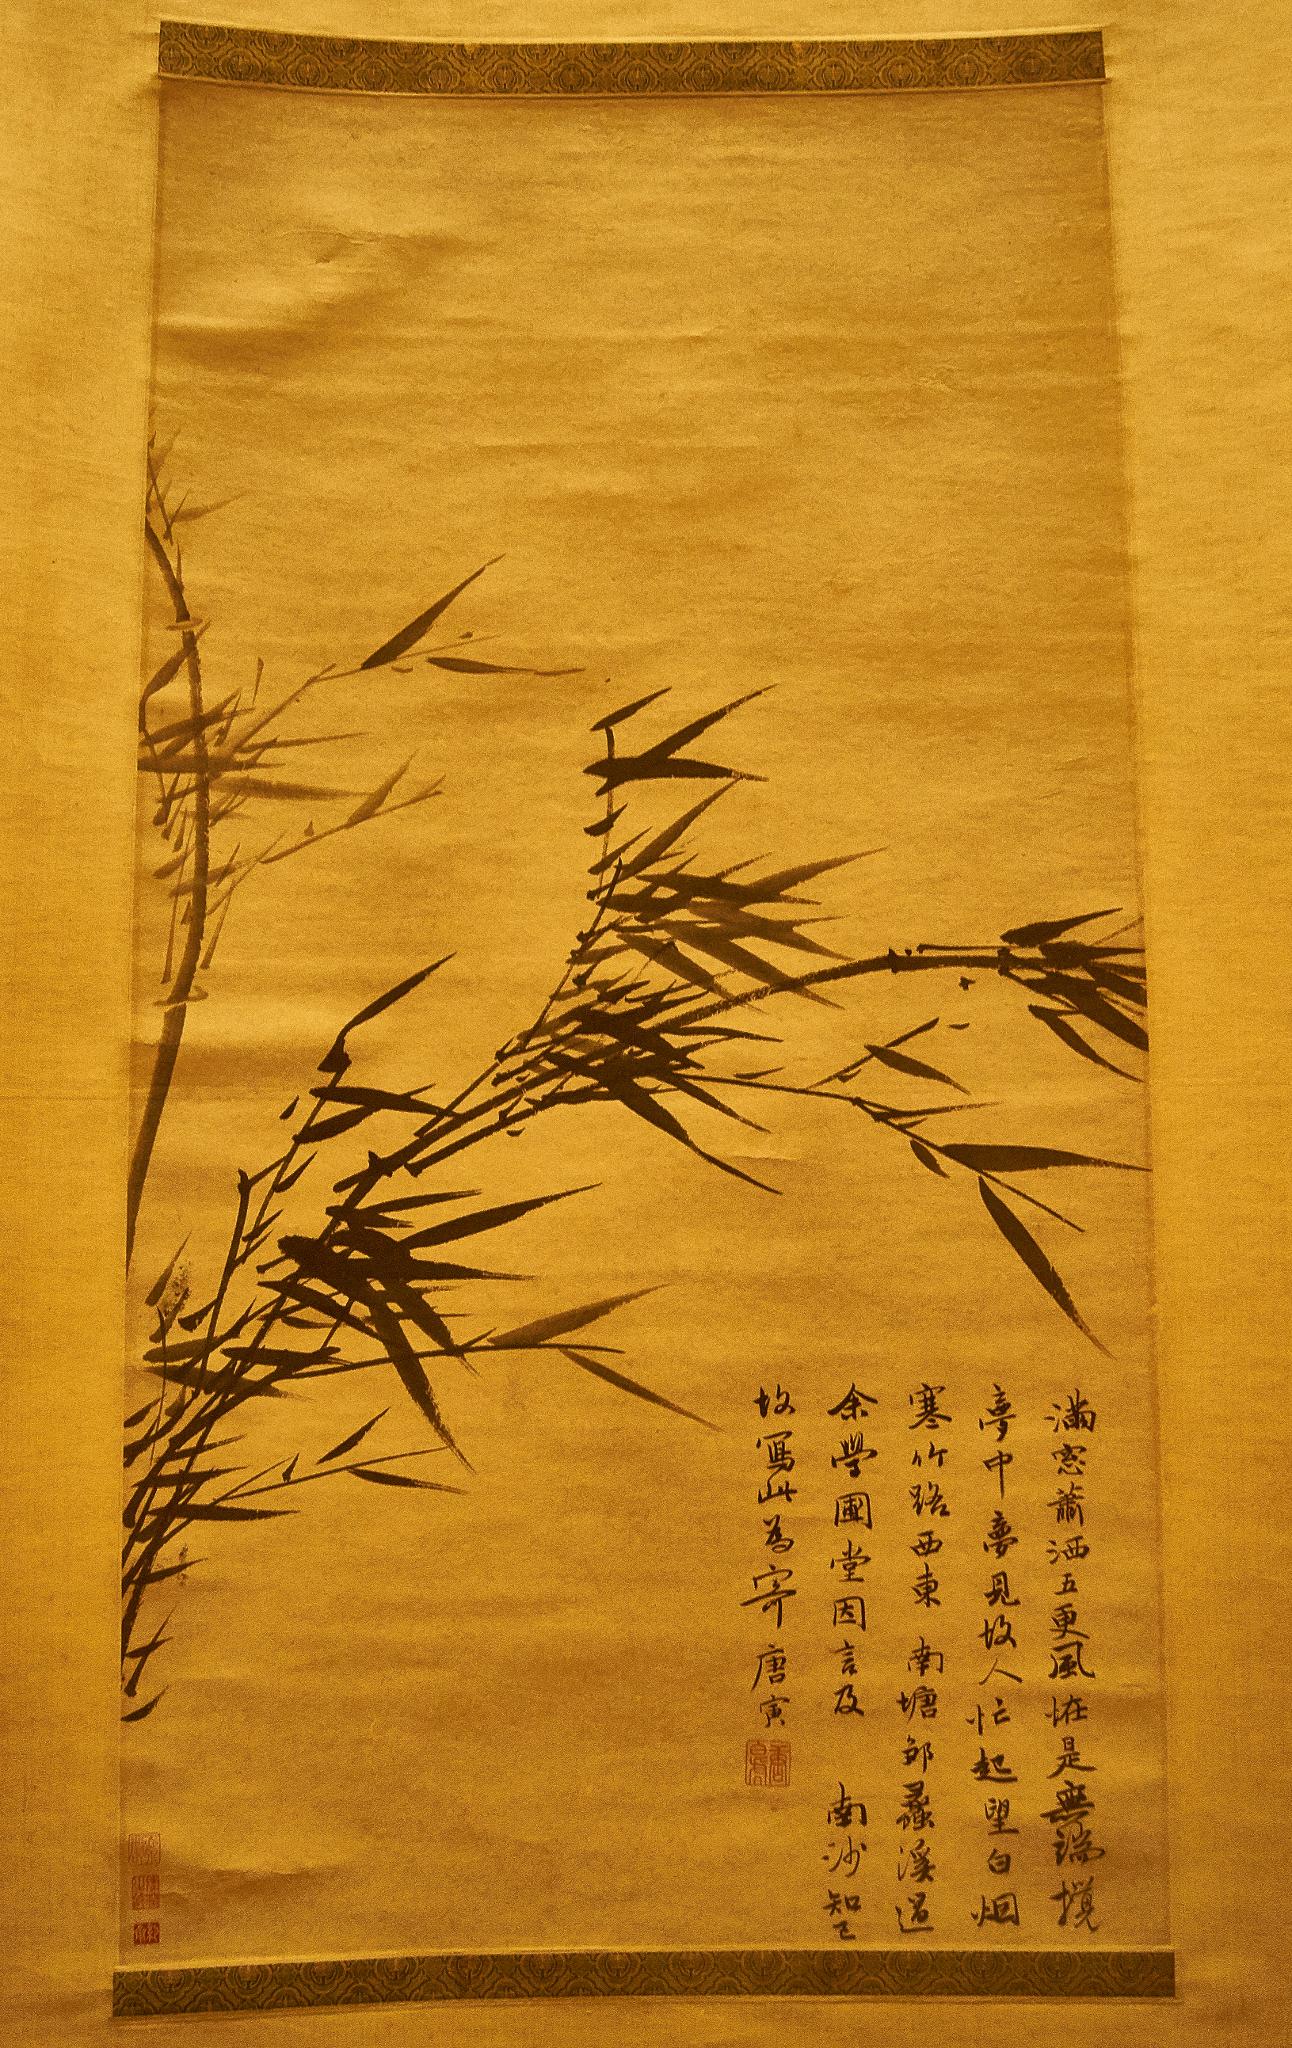 滿窓蕭洒五更風恠是無端攪
夢中夢見故人忙起望白烟
寒竹路西東 南塘鄒蠡溪過
余學圃堂因言及 南沙知己
故寫此為寄 唐寅